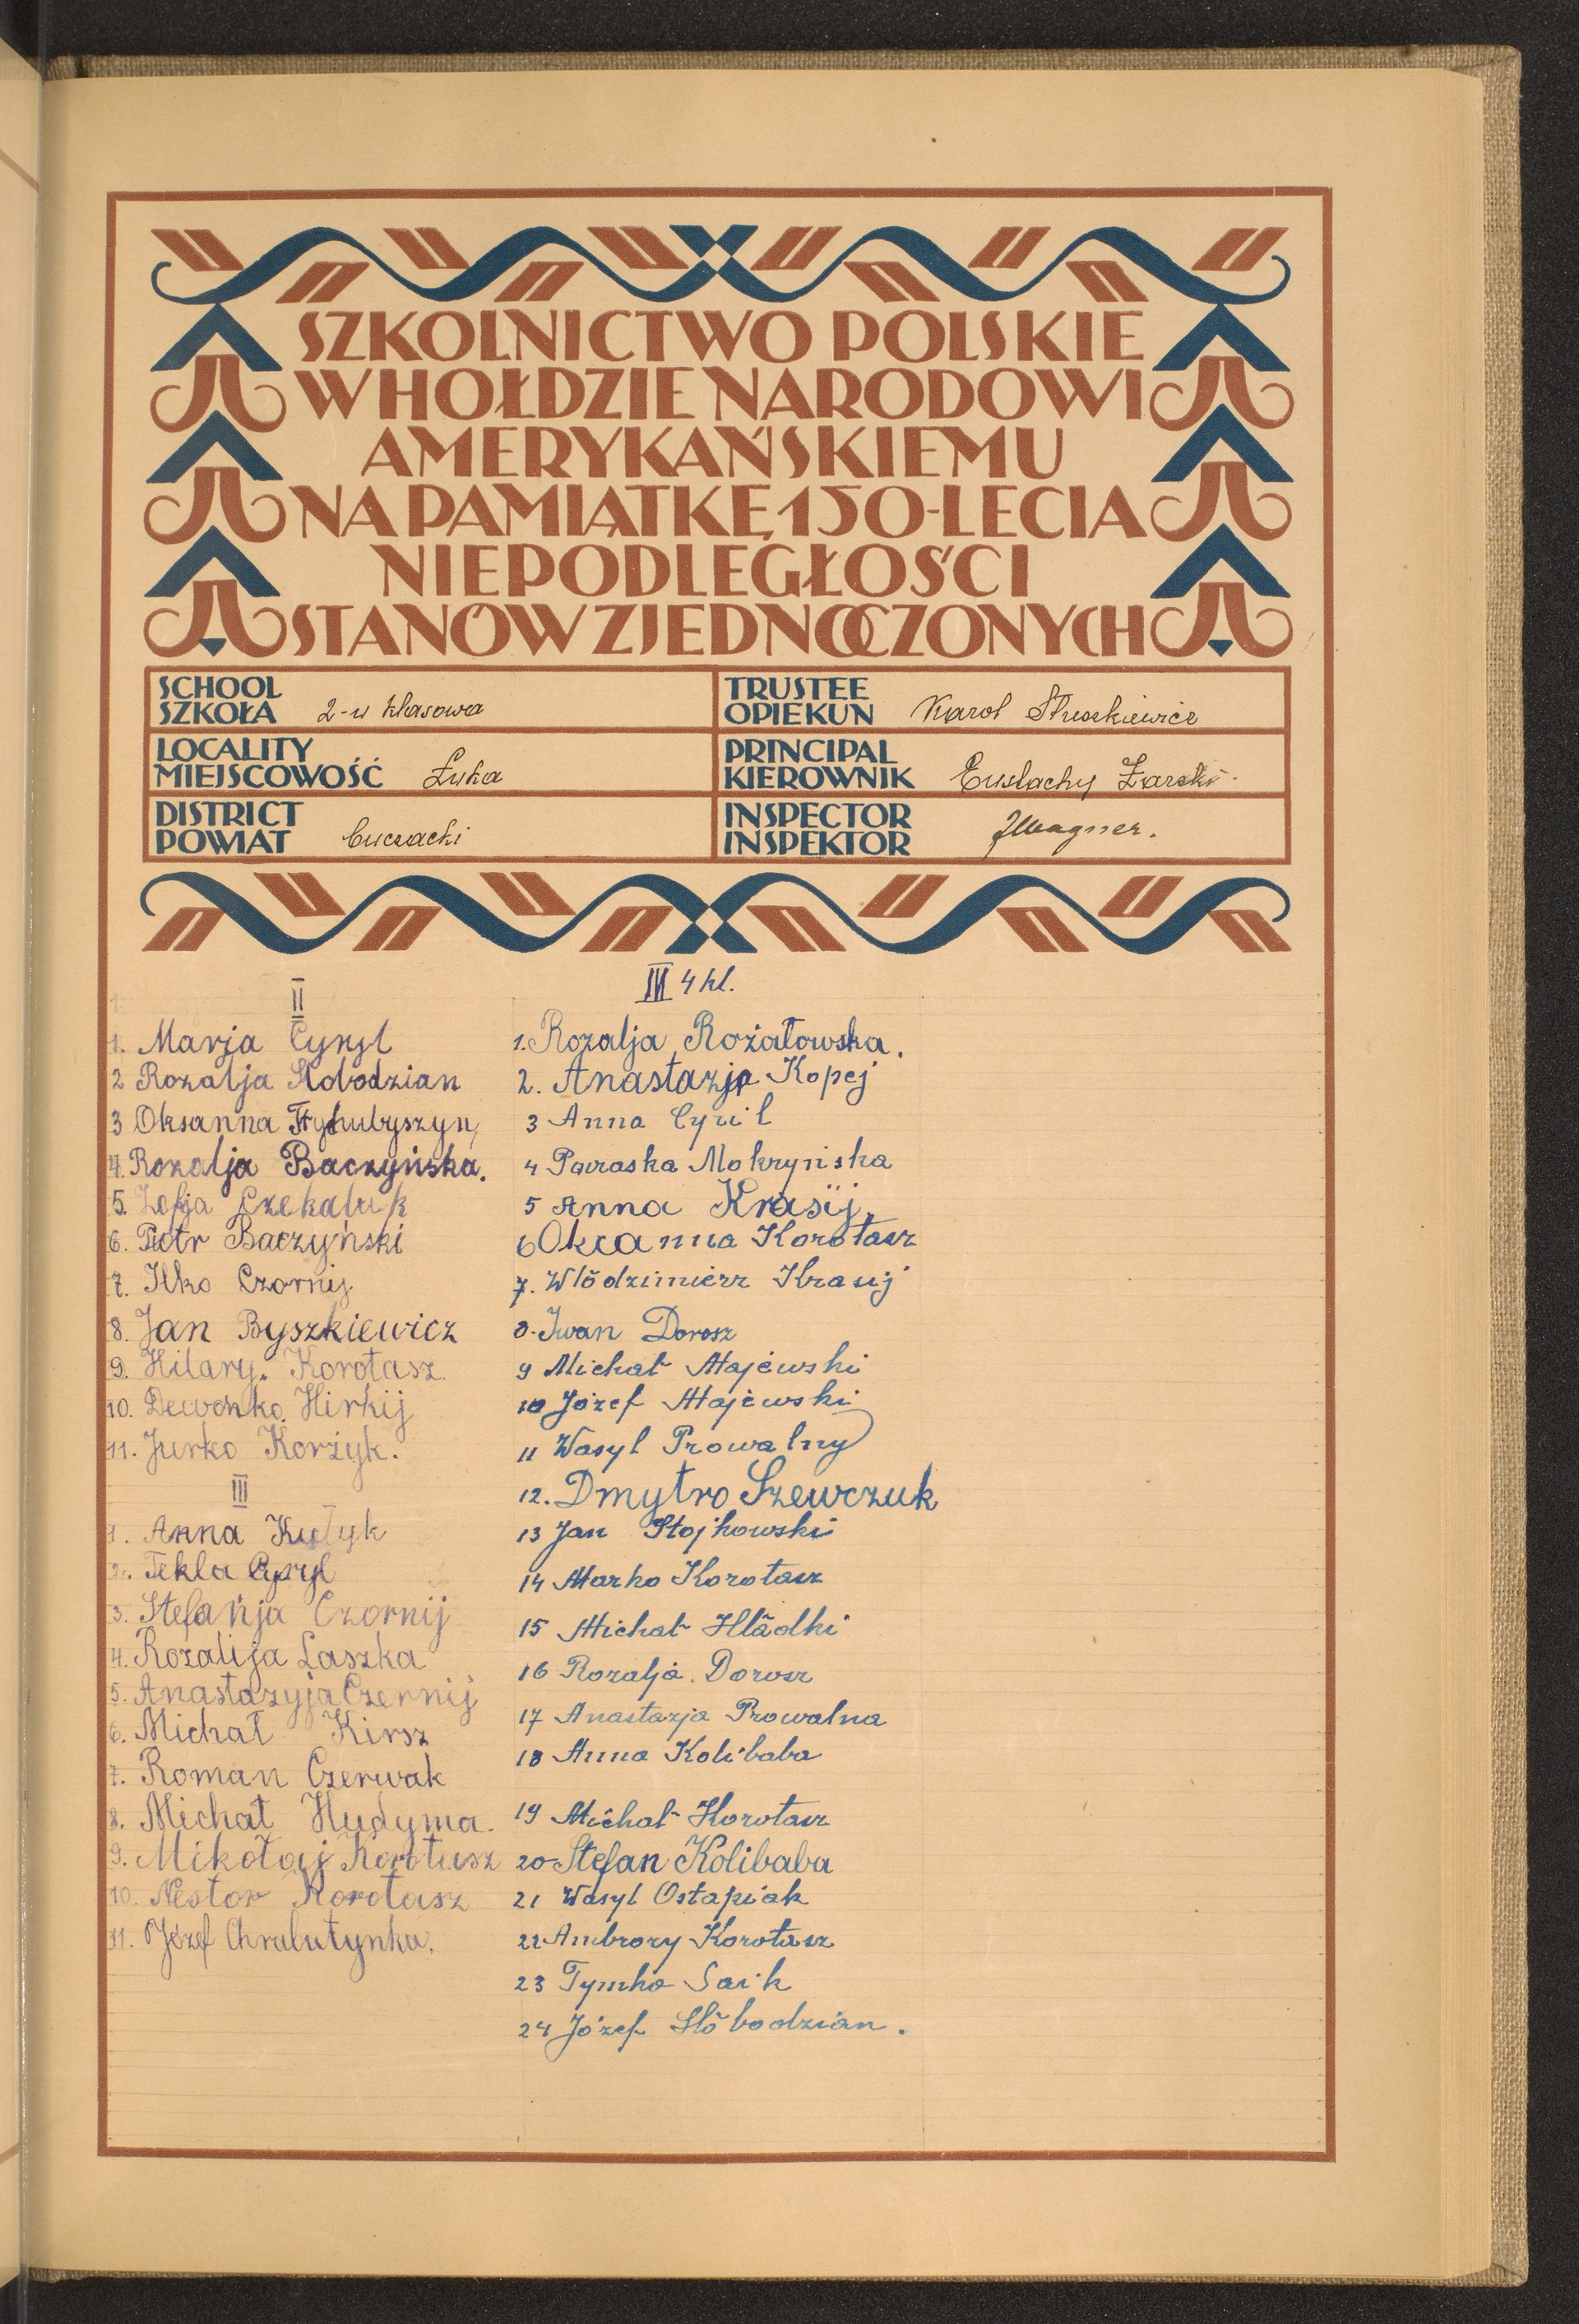 SZKOLNICTWO POLSKIE
W HOŁDZIE NARODOWI
AMERYKAŃSKIEMU
NA PAMIĄTKĘ 150-LECIA
NIEPODLEGŁOŚCI
STANÓW ZJEDNOCZONYCH
SCHOOL
SZKOŁA 2-u klasowa
TRUSTEE
OPIEKUN Karol
LOCALITY
MIEJSCOWOŚĆ Łuka
PRINCIPAL
KIEROWNIK Eustachy Żarski
DISTRICT
POWIAT buczacki
INSPECTOR
INSPEKTOR JWagner.
II
1. Marja Cyryl
2 Rozalja Słobodzian
3 Oksanna
4. Rozalja Baczyńska.
5. Zofja Czekaluk
6. Piotr Baczyński
7. Ilko Czornij
8. Jan Byszkiewicz
9. Hilary. Korotasz
10. Dewonko Hirkij
11. Jurko Korżyk.
III
1. Anna Kułyk
2. Tekla Cyryl
3. Stefańja Czornij
4. Rozalija Laszka
5. Anastazyja Czernij
6. Michał Kirsz
7. Roman Czerwak
8. Michał Hudyma.
9. Mikołaj Korotasz
10. Nestor Korotasz
11. Józef
IV 4 kl.
1. Rozalja Rożałowska.
2. Anastazja Kopej
3 Anna Cyril
4 Paraska Mokryńska
5 Anna Krasij,
6 Okcanna Korotasz
7. Włodzimierz Krasij
8. Iwan Dorosz
9 Michał Majewski
10 Józef Majewski
11 Wasyl Prowalny
12. Dmytro Szewczuk
13 Jan Stojkowski
14 Marko Korotasz
15 Michał Hładki
16 Rozalja. Dorosz
17 Anastazja Prowalna
18 Anna Kolibaba
19 Michał Korotasz
20 Stefan Kolibaba
21 Wasyl Ostapiak
22 Ambrozy Korotasz
23 Tymko Saik
24 Józef Słobodzian.